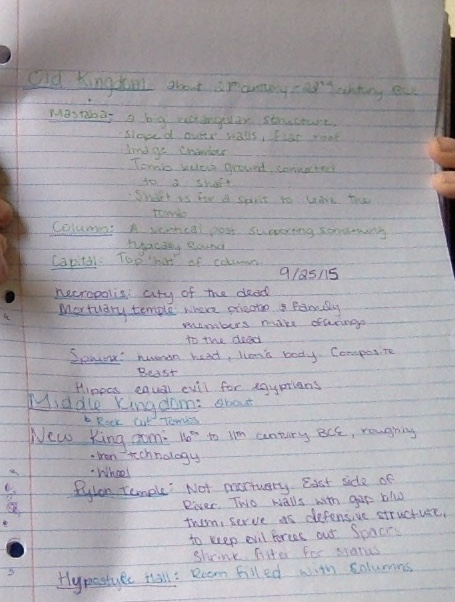 Old Kingdom about century - century BCE
Mastaba: a big rectangular structure,
sloped outer walls, flat roof
Image chamber
Tomb below ground, connected
to a shaft
Shaft is for a spirit to leave the
tomb
Column: A vertical post supporting something
typically round
Capital: Top "hat" of column
9/25/15
Necropolis: city of the dead
Mortuary temple where priests & family
members make offerings
to the dead
Sphinx: human head, lion's body. Composite
Beast
Hippos equal evil for egyptians
Middle Kingdom: about
Rock Cut Tombs
New Kingdom: 16th to 11th century BCE, roughly
• Iron technology
• Wheel
Pylon Temple: Not mortuary East side of
River. Two walls with gap b/w
them, serve as defensive structure,
to keep evil forces out Spaces
shrink, filter for status
Hypostyle Hall: Room filled with columns